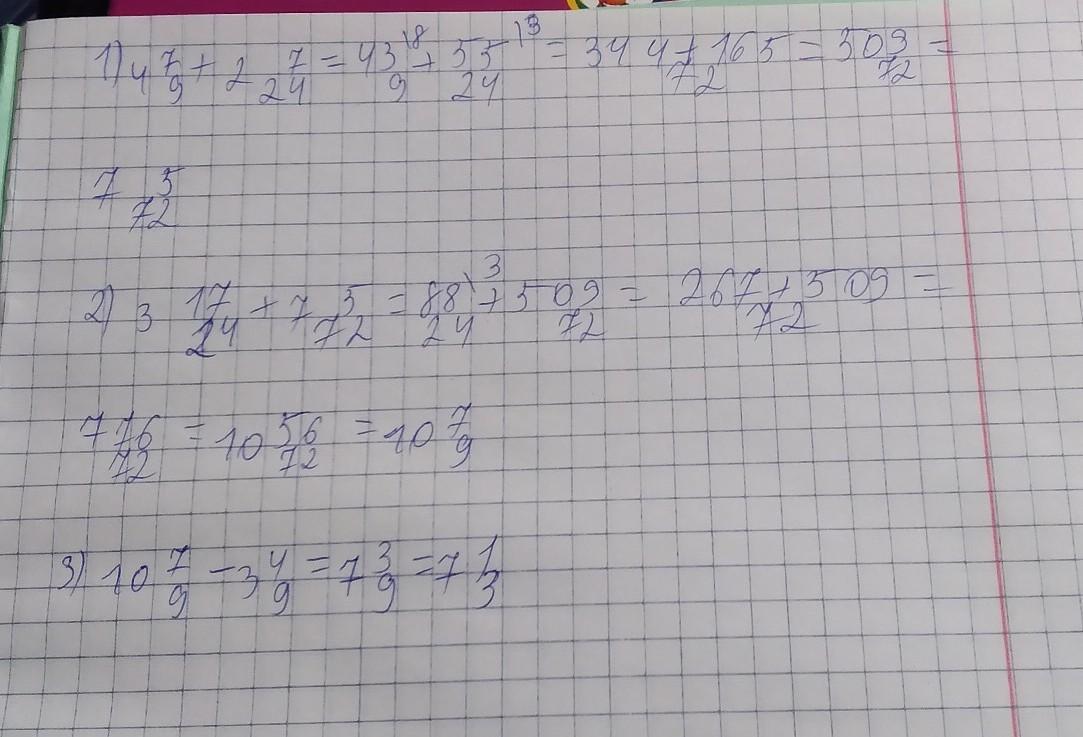 1) 4 7/9 + 2 7/24 = 43\8/9 + 55\3/24 = 344+165/72 = 509/72 =
7 5/72
2) 3 17/24 + 7 5/72 = 88\3/24 + 509/72 = 267+509/72 =
776/72 = 10 56/72 = 10 7/9
3) 10 7/9 - 3 4/9 = 7 3/9 = 7 1/3